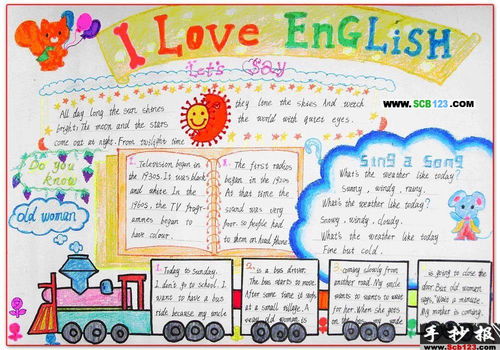 I Love EnGLiSH
Let's Say
WWW.SCB123.COM
All day long the sun shines
bright. The moon and the stars
come out at night. From twilight time
they love the skies And watch
the world with quiet eyes.
Do you
know
old woman
1. Television began in
the 1930s. It was black
and white. In the
1960s, the TV progr-
ammes began to
have colour.
2. The first radios
began in the 1920s
At that time the
sound was very
poor. so people had
to them on head phone
Sing a Song
What's the weather like today?
Sunny. windy. rainy.
What's the weather like today?
Snowy. windy. cloudy.
What's the weather like today
Fine but cold.
1. Today to Sunday.
I don't go to school. I
wants to have a bus
ride because my uncle
2. is a bus driver.
The bus starts to move.
After some time it stops
at a small village. A
very old woman is
3. coming slowly from
another road. My uncle
wants to wants to wave
for her. When she gets
on the bus my uncle
is going to close the
door. But old woman
says, Wait a minute.
My mather is coming.
手抄报
www.Scb123.com